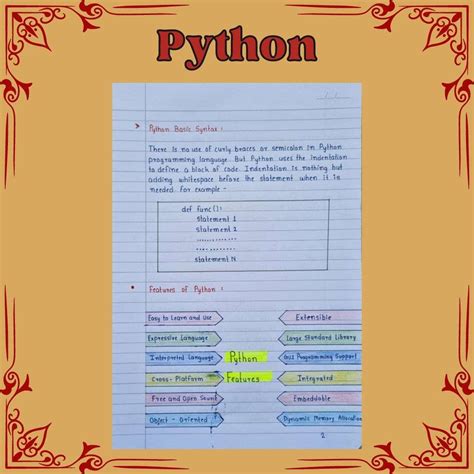 Python
Python Basic Syntax :
There is no use of curly braces or semicolon in Python
programming language. But Python uses the indentation
to define a block of code. Indentation is nothing but
adding whitespace before the statement when it is
needed for example -
def func():
statement 1
statement 2
............
............
statement N
Features of Python :
Easy to Learn and Use
Extensible
Expressive Language
Large Standard Library
Interpreted Language
Python
GUI Programming Support
Cross-Platform
Features
Integrated
Free and Open Sound
Embeddable
Object - Oriented
Dynamic Memory Allocation
2